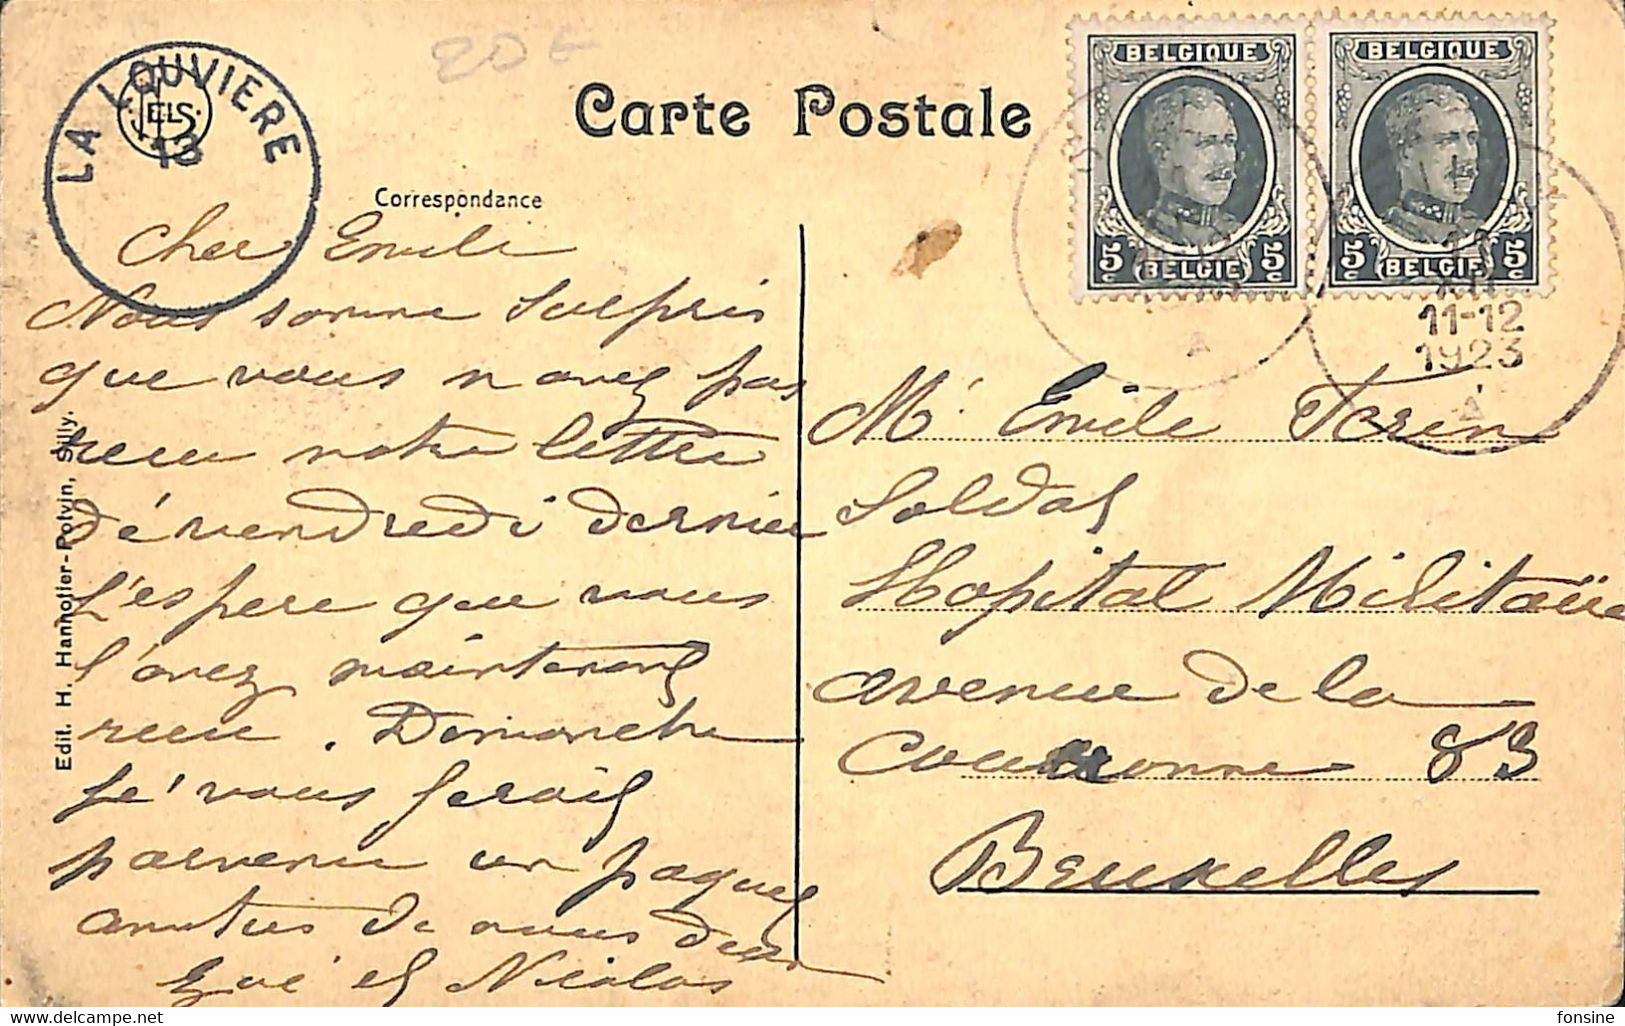 20 €
LA LOUVIERE
13
ELS
Carte Postale
Correspondance
BELGIQUE
5c BELGIE 5c
BELGIQUE
5c BELGIE 5c
XII
11-12
1923
A
A
Cher Emile
Nous somme surpris
que vous n avez pas
recu notre lettre
dé vendredi dernier
J'espere que vous
l'avez maintenant
recu . Dimanche
je vous ferais
parvenir un paquet
amities de nous deux
Zoé et Nicolas
Mr Emile Torin
Soldat
Hopital Militaire
avenue de la
Couronne 83
Bruxelles
Edit. H. Hannotier-Potvin, Silly.
delcampe.net
fonsine